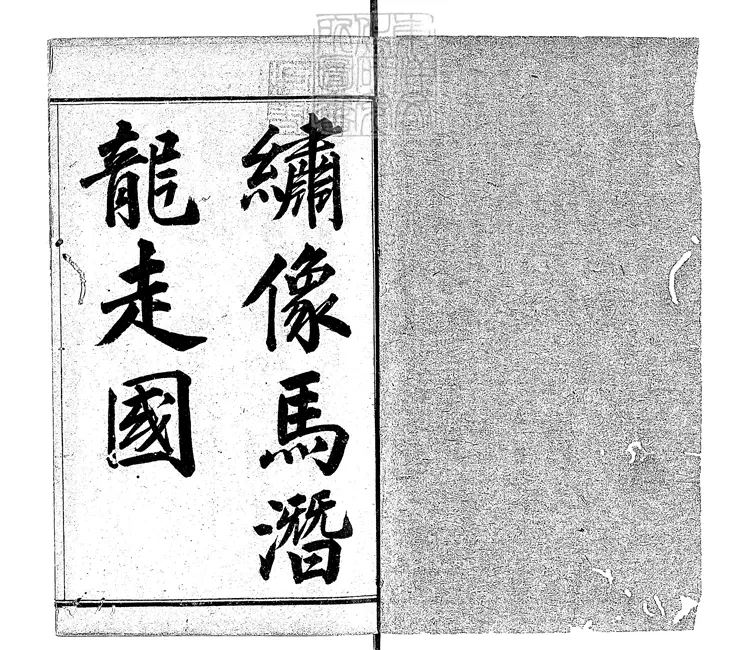 繡像馬潛
龍走國